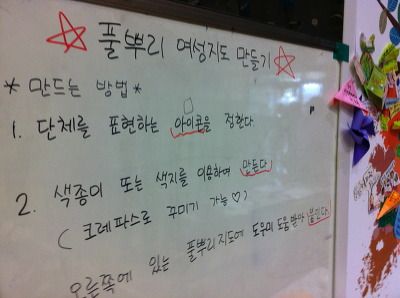 ☆ 풀뿌리 여성지도 만들기 ☆
* 만드는 방법 *
1. 단체를 표현하는 아이콘을 정한다
2. 색종이 또는 색지를 이용하여 만든다
( 크레파스로 꾸미기 가능 ♡ )
오른쪽에 있는 풀뿌리지도에 도우미 도움받아 붙인다